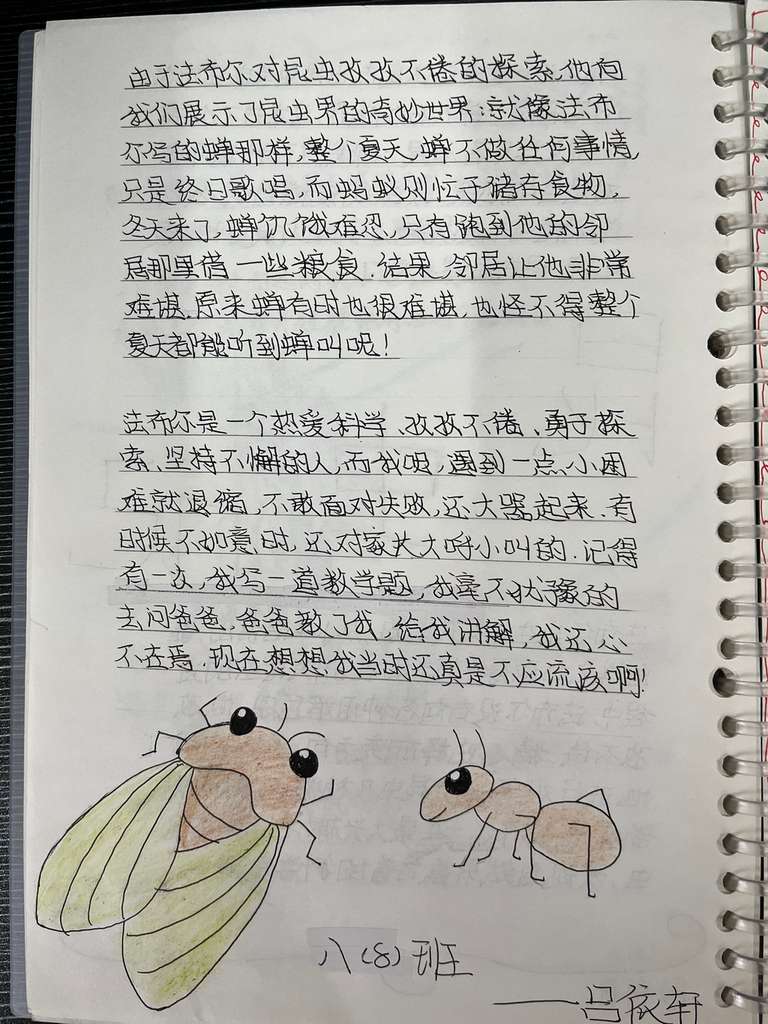 由于法布尔对昆虫孜孜不倦的探索,他向
我们展示了昆虫界的奇妙世界:就像法布
尔写的蝉那样,整个夏天,蝉不做任何事情,
只是终日歌唱,而蚂蚁则忙于储存食物,
冬天来了,蝉饥饿难忍,只有跑到他的邻
居那里借一些粮食.结果,邻居让他非常
难堪.原来蝉有时也很难堪,也怪不得整个
夏天都能听到蝉叫呢!
法布尔是一个热爱科学、孜孜不倦、勇于探
索、坚持不懈的人,而我呢,遇到一点小困
难就退缩,不敢面对失败,还大器起来.有
时候不如意时,还对家长大呼小叫的.记得
有一次,我写一道数学题,我毫不犹豫的
去问爸爸,爸爸教了我,给我讲解,我还心
不在焉.现在想想,我当时还真是不应流该啊!
八(8)班
——吕依轩